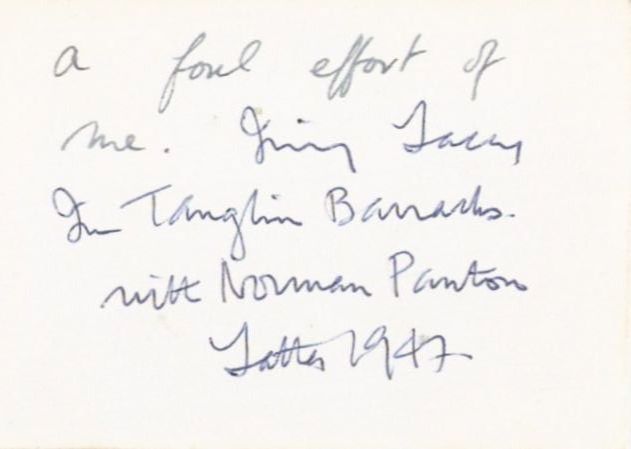 a foul effort of
me. Jimmy
In Tanglin Barracks.
with Norman Panton
Latter 1947